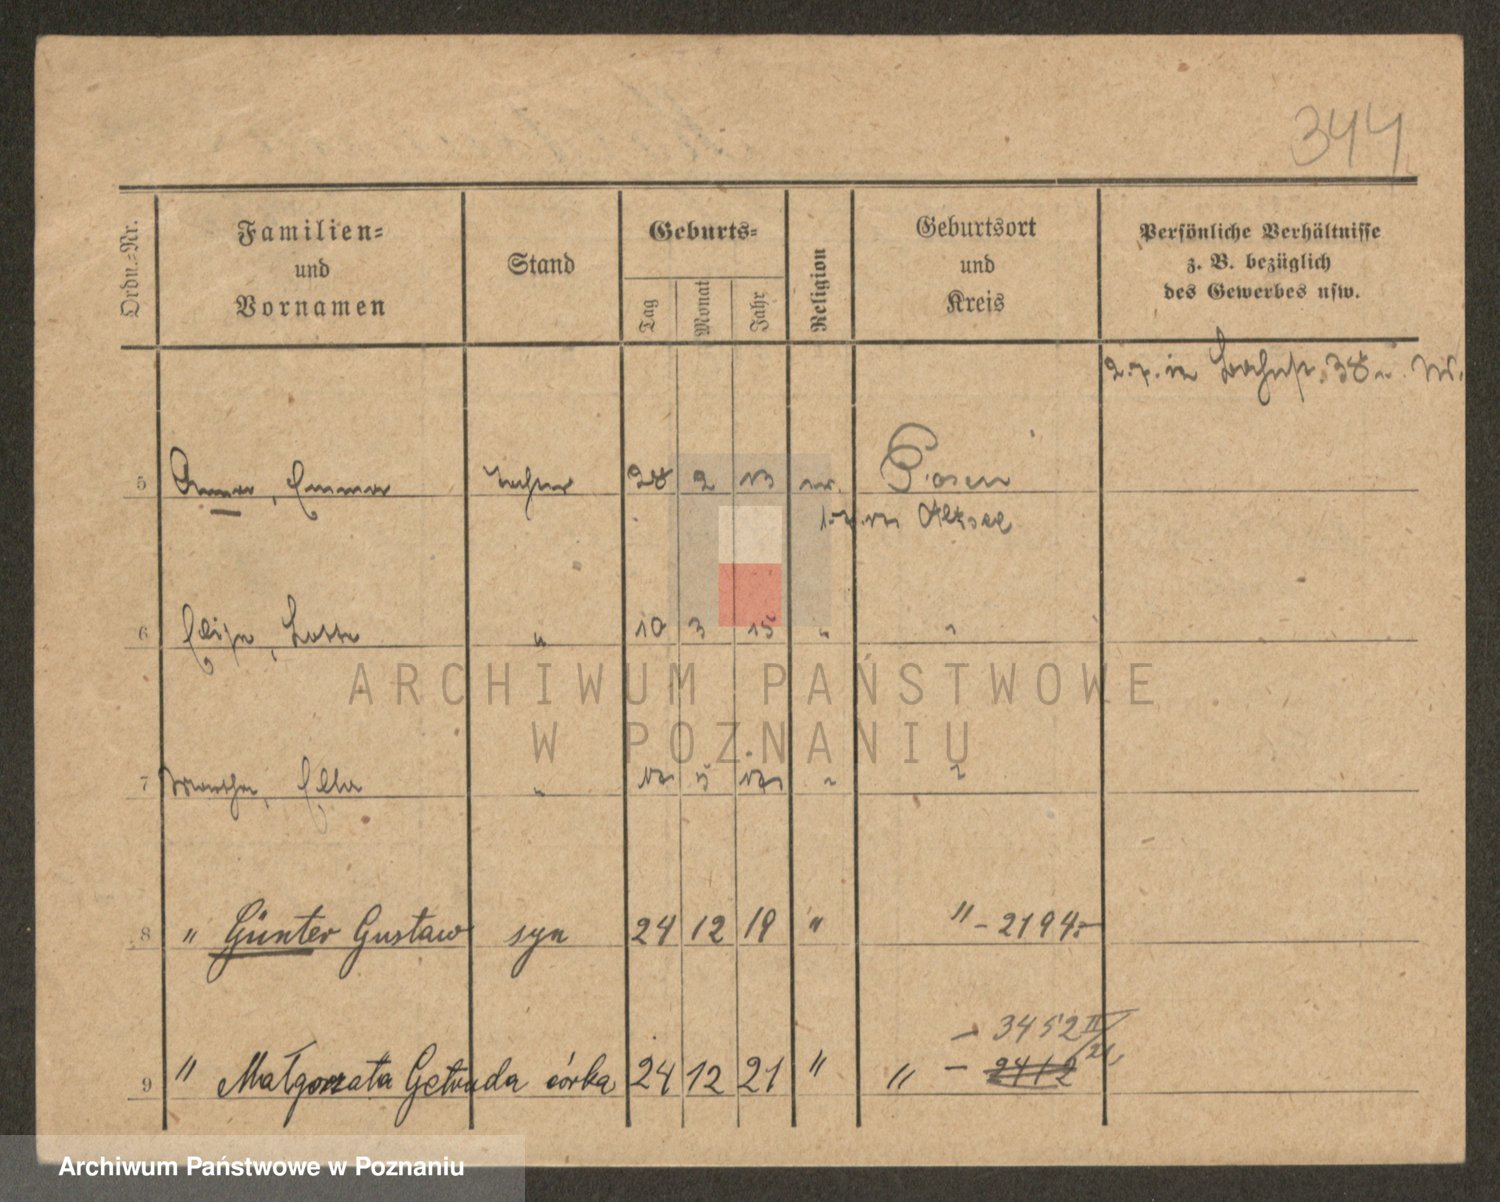 344
Ordn.-Nr.
Familien-
und
Vornamen
Stand
Geburts-
Tag
Monat
Jahr
Religion
Geburtsort
und
Kreis
Persönliche Verhältnisse
z. B. bezüglich
des Gewerbes usw.
5 Anna, Emma Tochter 28 2 13 ev. Posen
6 Elise, Lotte " 10 3 15 " "
ARCHIWUM PAŃSTWOWE
W POZNANIU
7 Martha, Ella " 17 5 17 " "
8 " Günter Gustaw syn 24 12 19 " " - 2194.-
- 3452 II/21,
9 " Małgorzata Getruda córka 24 12 21 " " - 2412
Archiwum Państwowe w Poznaniu